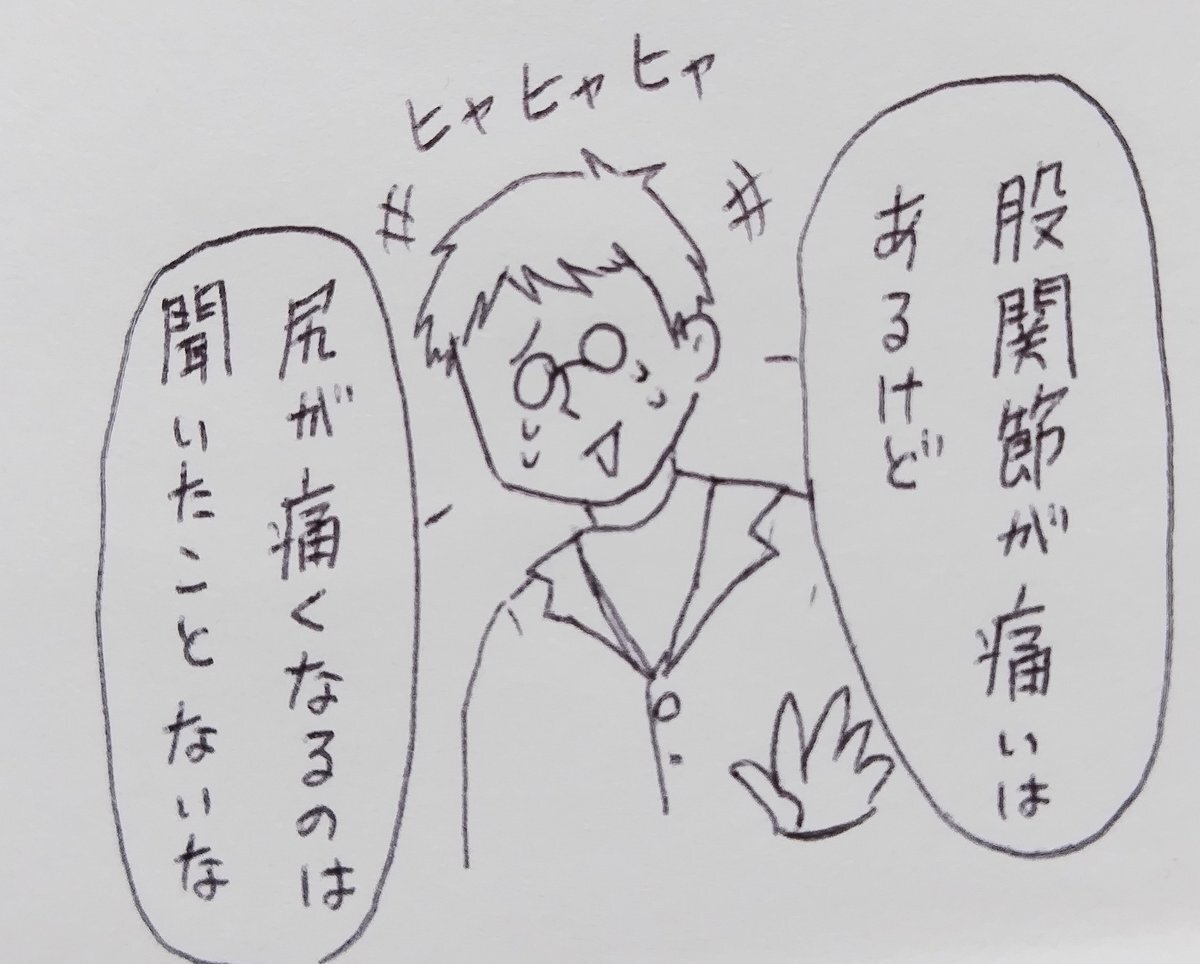 ヒャヒャヒャ
股関節が痛いは
あるけど
尻が痛くなるのは
聞いたことないな